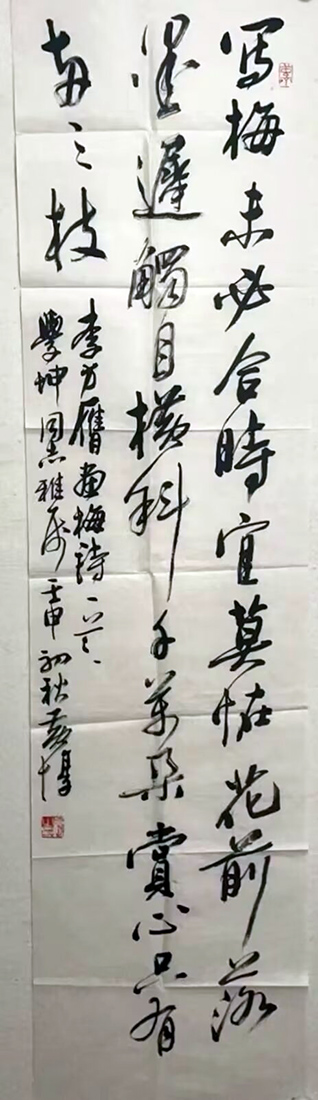 寫梅未必合時宜莫恠花前落
墨遲觸目橫斜千萬朵賞心只有
兩三枝
李方膺畫梅詩一首
學坤同志雅屬壬申初秋黃惇